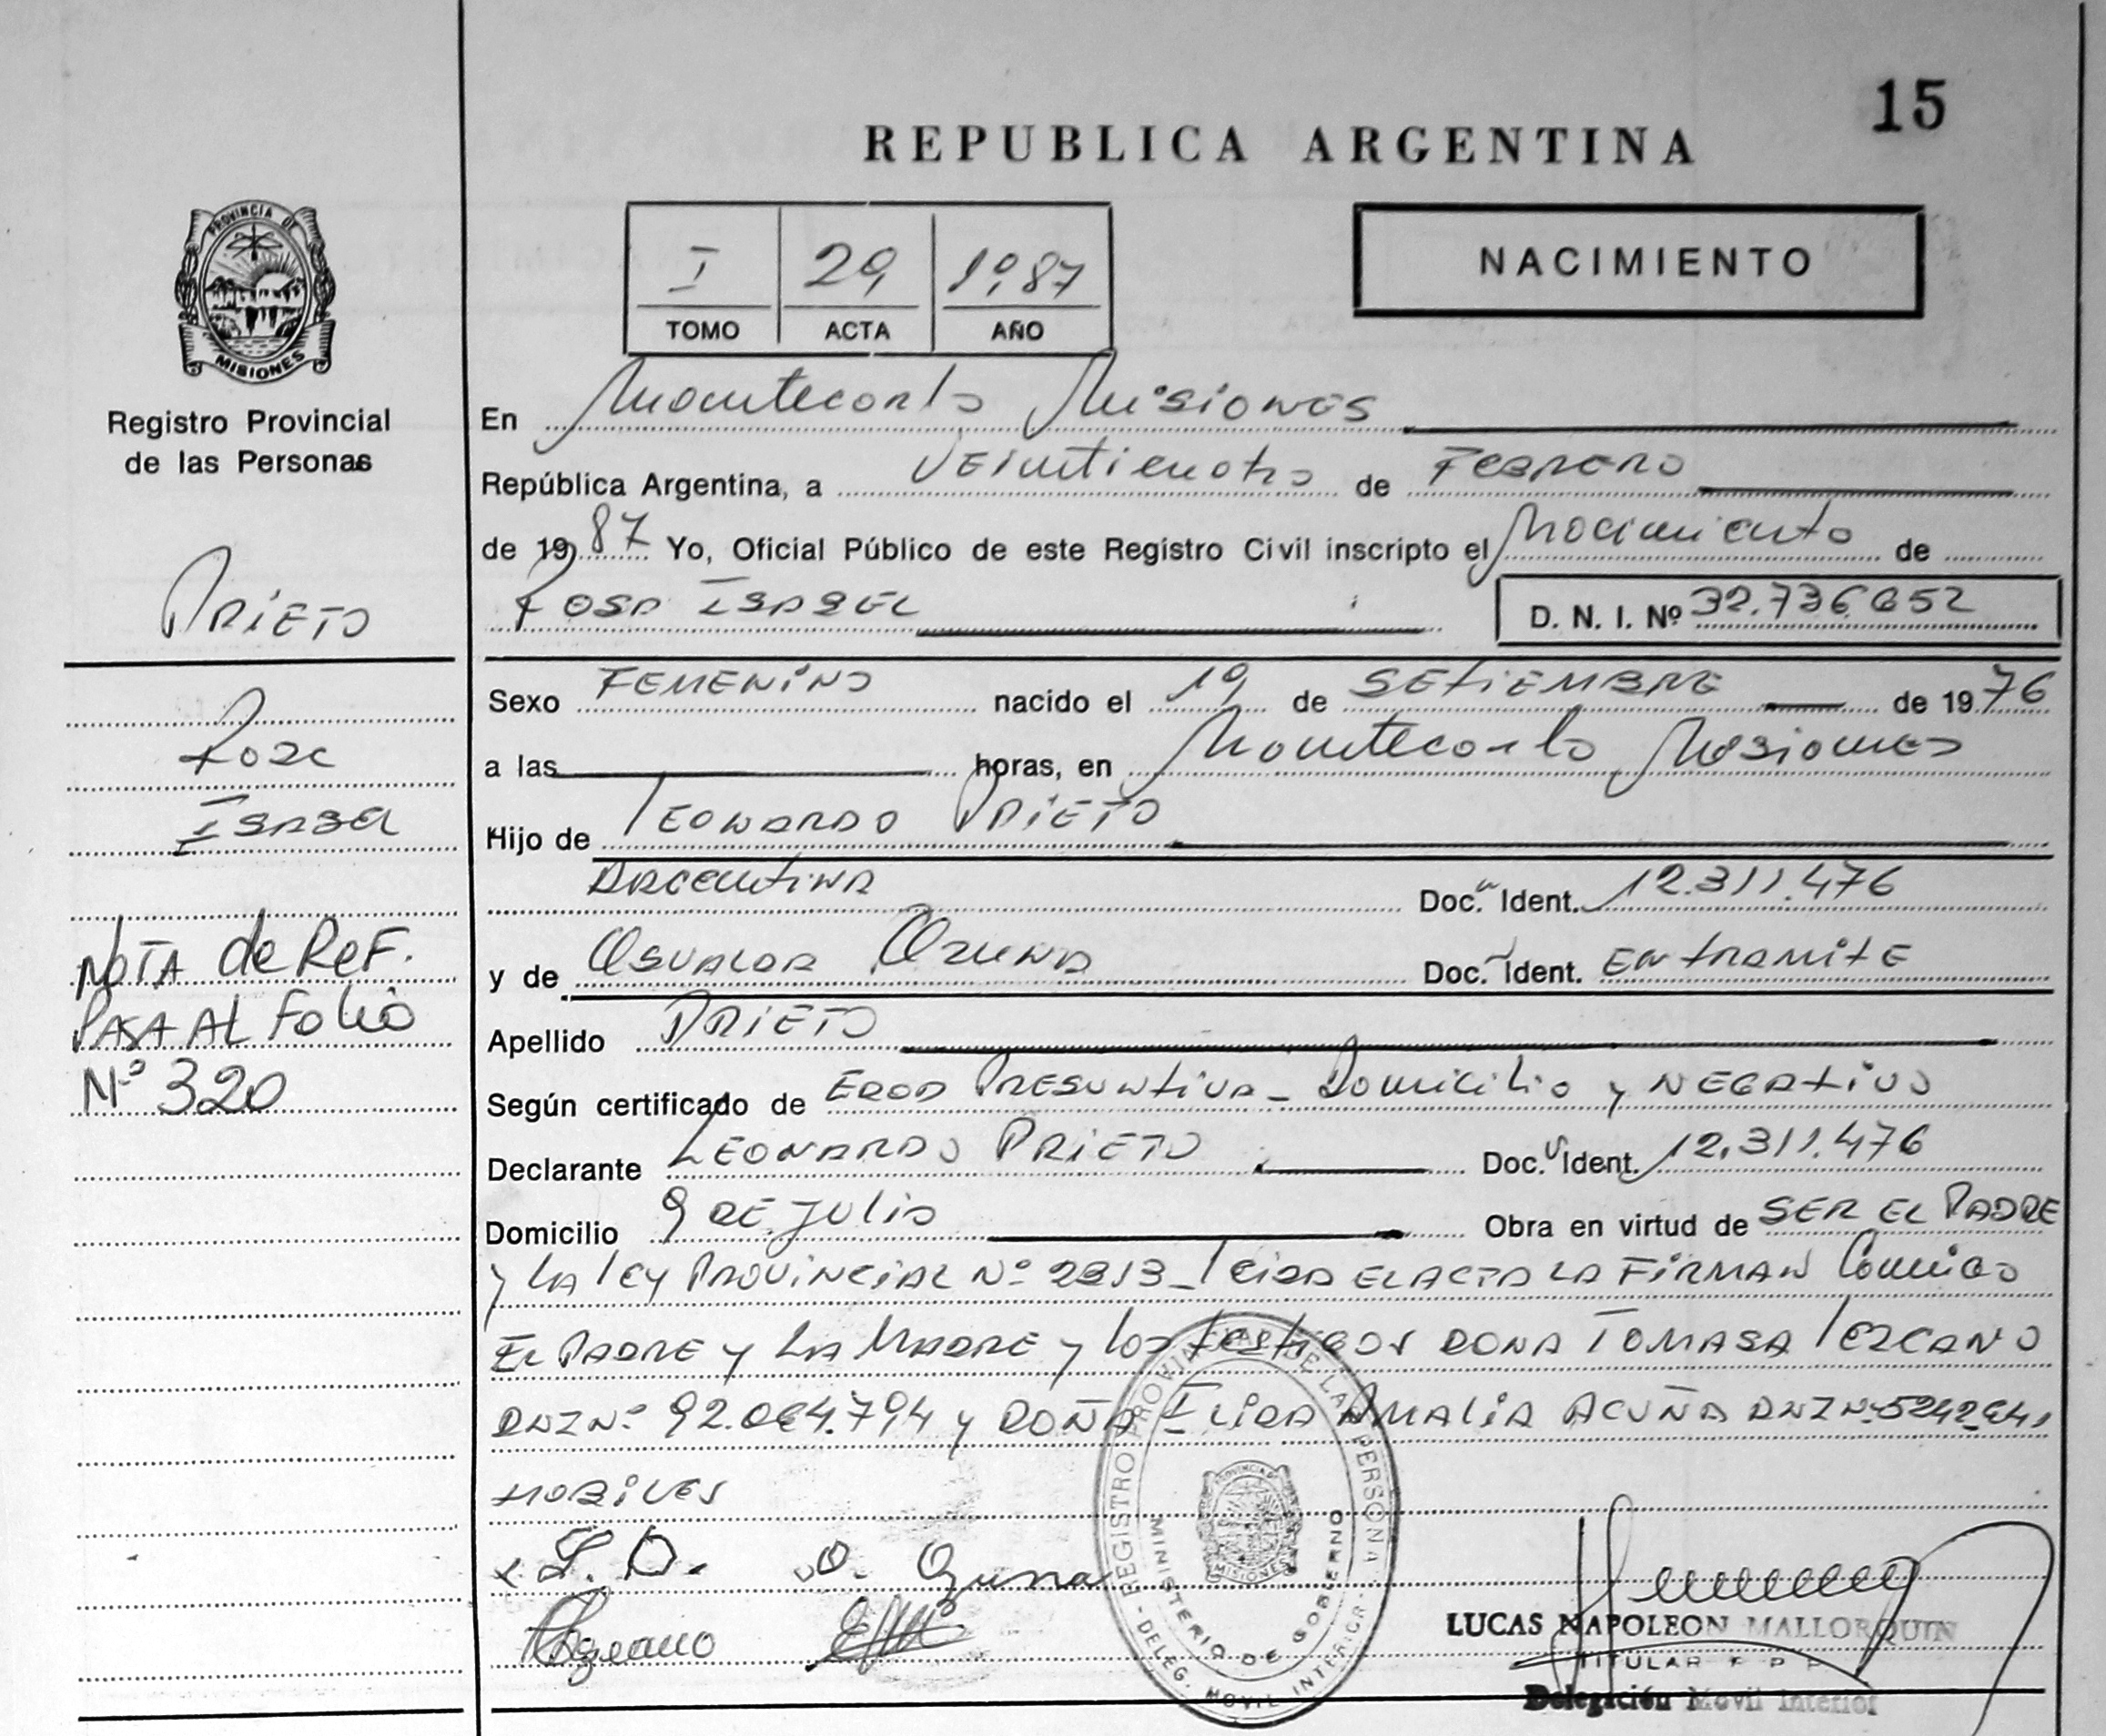 15
REPUBLICA ARGENTINA
I 29 1987
TOMO ACTA AÑO
NACIMIENTO
PROVINCIA DE
MISIONES
Registro Provincial
de las Personas
PRIETO
Rosa
ISABEL
NOTA de ReF.
PASA AL Folio
Nº 320
En Montecarlo Misiones
República Argentina, a Veinticuatro de FEBRERO
de 1987 Yo, Oficial Público de este Registro Civil inscripto el Nacimiento de
ROSA ISABEL D. N. I. Nº 32.736.652
Sexo FEMENINO nacido el 19 de SETIEMBRE de 1976
a las horas, en Montecarlo Misiones
Hijo de LEONARDO PRIETO
ARGENTINA Doc. Ident. 12.311.476
y de OSVALDA OZUNA Doc. Ident. EN TRAMITE
Apellido PRIETO
Según certificado de EDAD PRESUNTIVA - Domicilio y NEGATIVO
Declarante LEONARDO PRIETO Doc. Ident. 12.311.476
Domicilio 9 DE JULIO Obra en virtud de SER EL PADRE
y LA LEY PROVINCIAL Nº 2313 - LEIDA EL ACTA LA FIRMAN Conmigo
EL PADRE y LA MADRE y los testigos DOÑA TOMASA LEZCANO
DNI Nº 92.064.794 y DOÑA ELIDA AMALIA ACUÑA DNI Nº 5242641
HABILES
L. P. O. Ozuna
REGISTRO PROVINCIAL DE LAS PERSONAS
MINISTERIO DE GOBIERNO
DELEG. MOVIL INTERIOR
LUCAS NAPOLEON MALLORQUIN
TITULAR
Delegación Móvil Interior